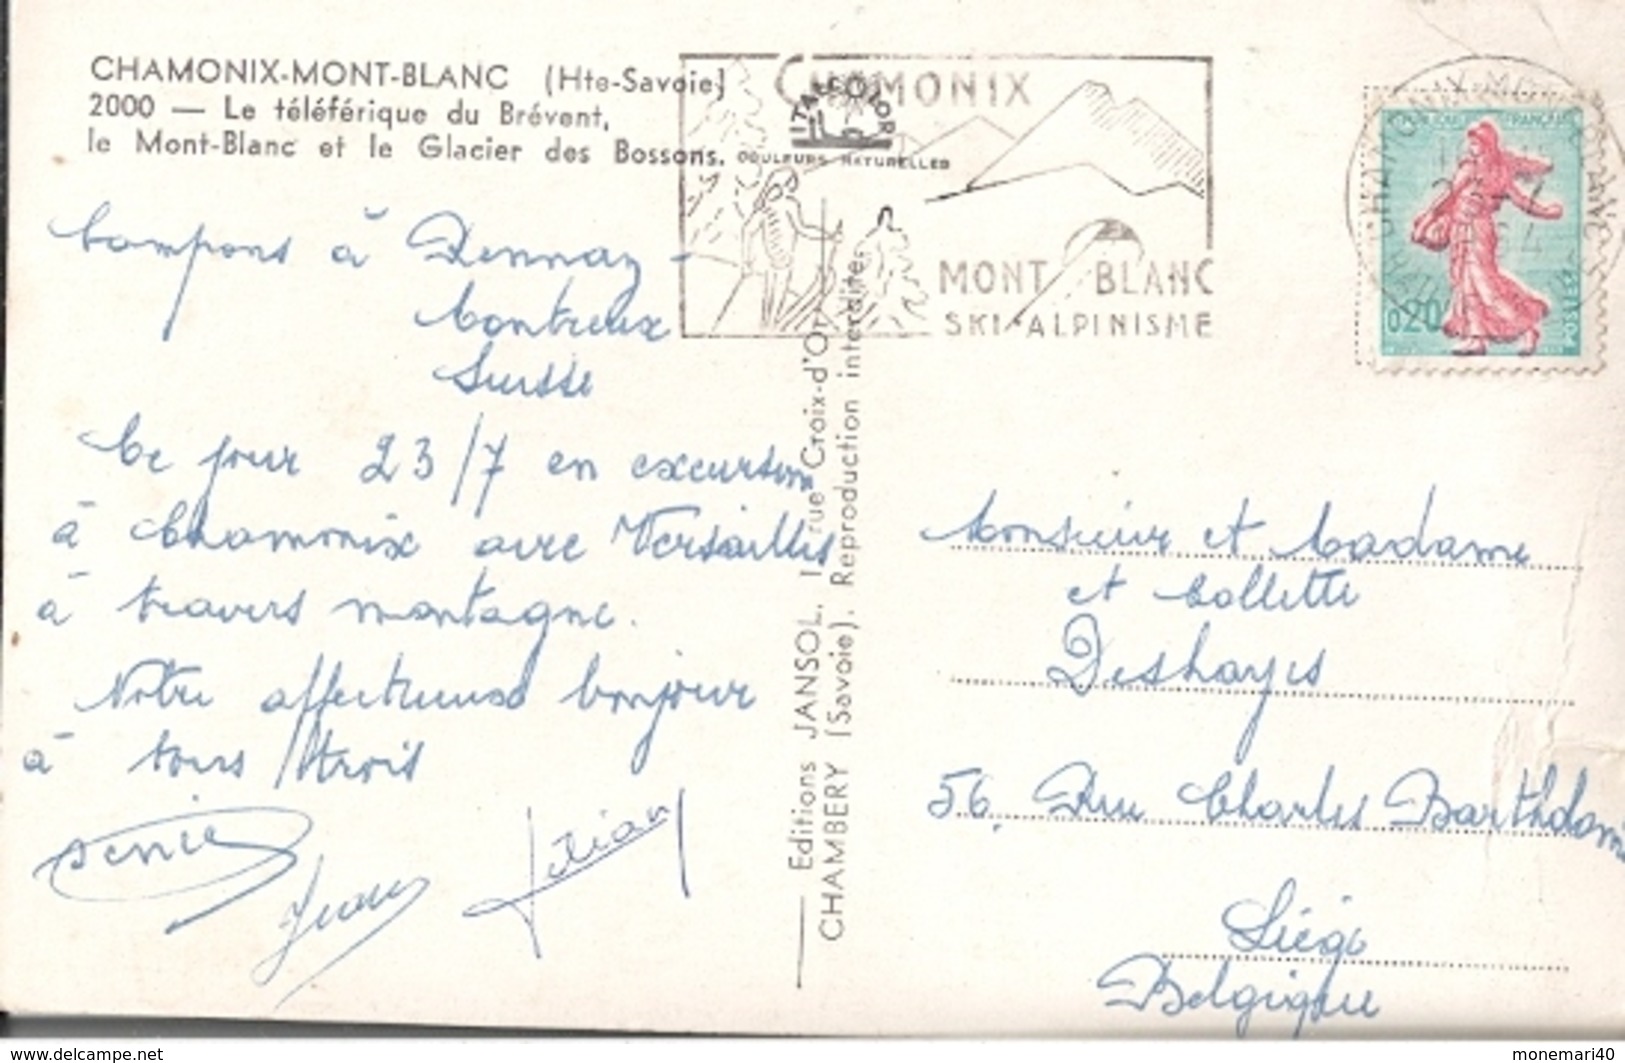 CHAMONIX-MONT-BLANC (Hte-Savoie)
2000 — Le téléférique du Brévent,
le Mont-Blanc et le Glacier des Bossons.
ITALCOLOR
COULEURS NATURELLES
CHAMONIX
MONT BLANC
SKI-ALPINISME
CHAMONIX-MONT-BLANC
FRANÇAISE
0,20
Campons à Rennaz -
Montreux
Suisse
Ce jour 23/7 en excursion
à Chamonix avec Versailles
à travers montagne.
Notre affectueux bonjour
à tous trois
Editions JANSOL, 1 rue Croix-d'Or
CHAMBERY (Savoie). Reproduction interdite.
Monsieur et Madame
et Collette
Deshayes
56, Rue Charles Bartholomé
Liège
Belgique
www.delcampe.net
monemari40